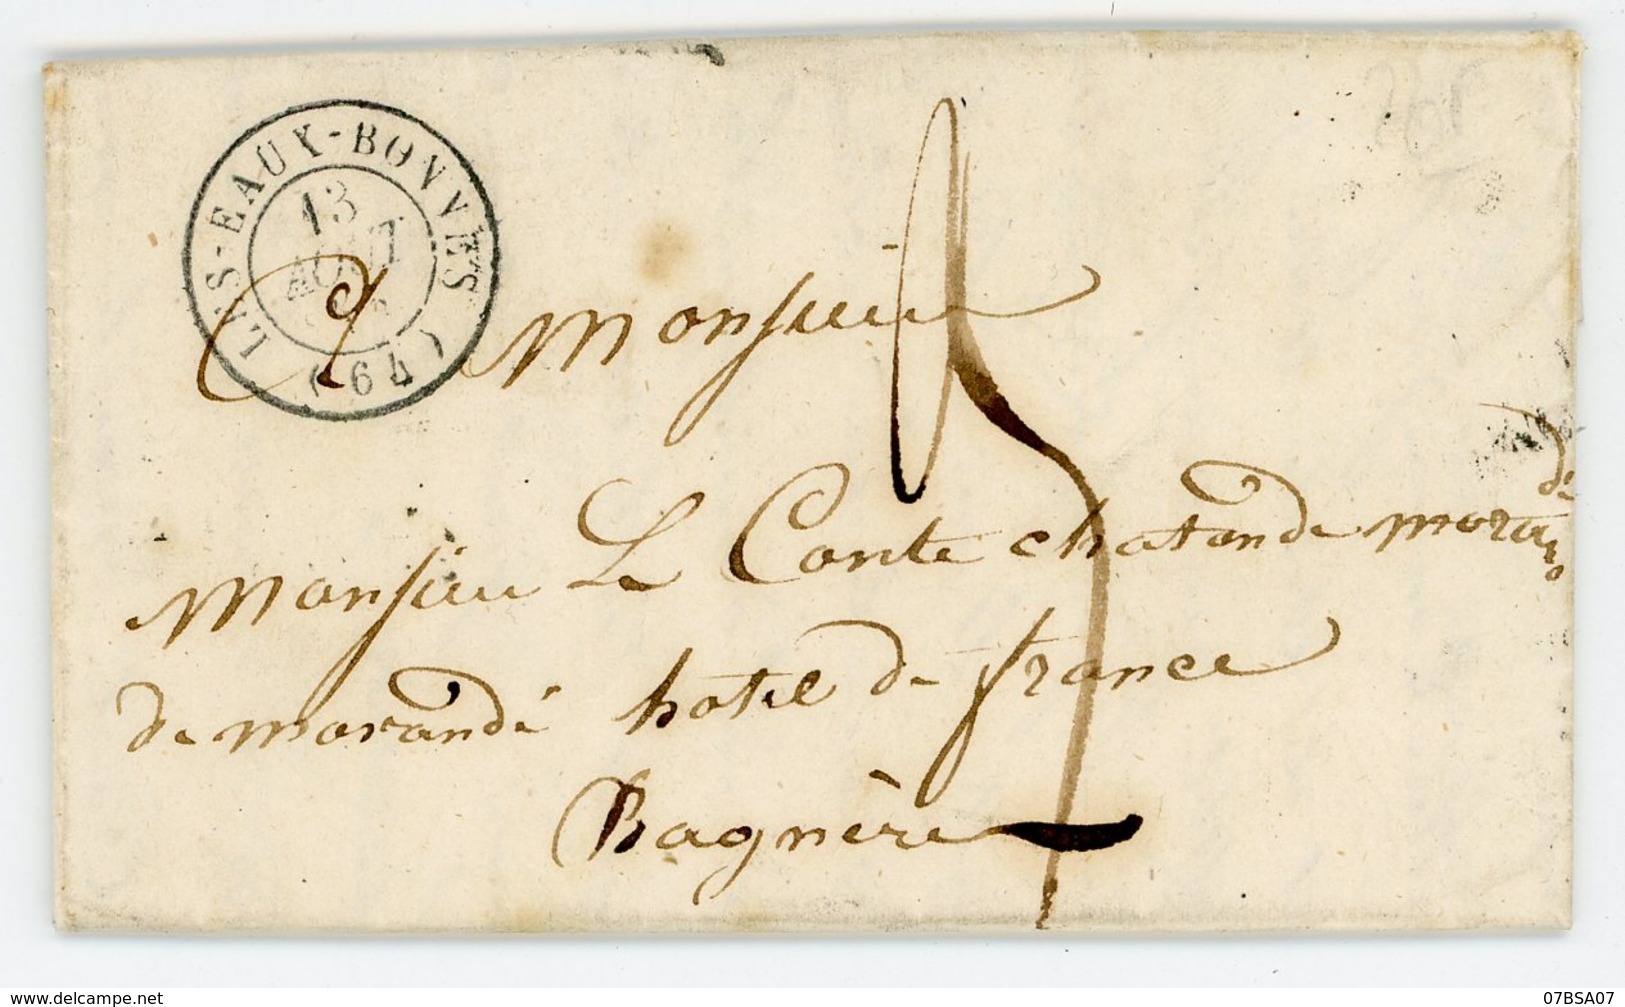 LES-EAUX-BONNES
13
AOUT
(64)
A Monsieur
Monsieur Le Conte chatonde morandé
de morandé hotel de france
Bagnère
www.delcampe.net
07BSA07